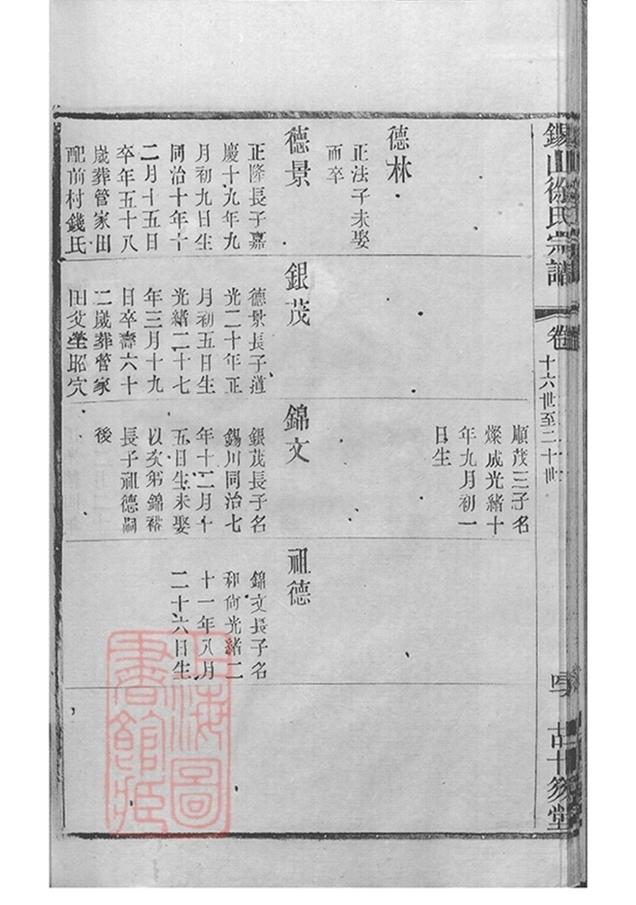 錫山徐氏宗譜
卷
十六世至二十世
順茂三子名
燦成光緒十
年九月初一
日生
德林
正法子未娶
而卒
德景
正隆長子嘉
慶十九年九
月初九日生
同治十年十
二月十五日
卒年五十八
歲葬管家田
配前村錢氏
銀茂
德景長子道
光二十年正
月初五日生
光緒二十七
年三月十九
日卒壽六十
二歲葬管家
田父塋昭穴
錦文
銀茂長子名
錫川同治七
年十二月十
五日生未娶
以次弟錦裕
長子祖德嗣
後
祖德
錦文長子名
和尚光緒二
十一年八月
二十六日生
上海圖
書館藏